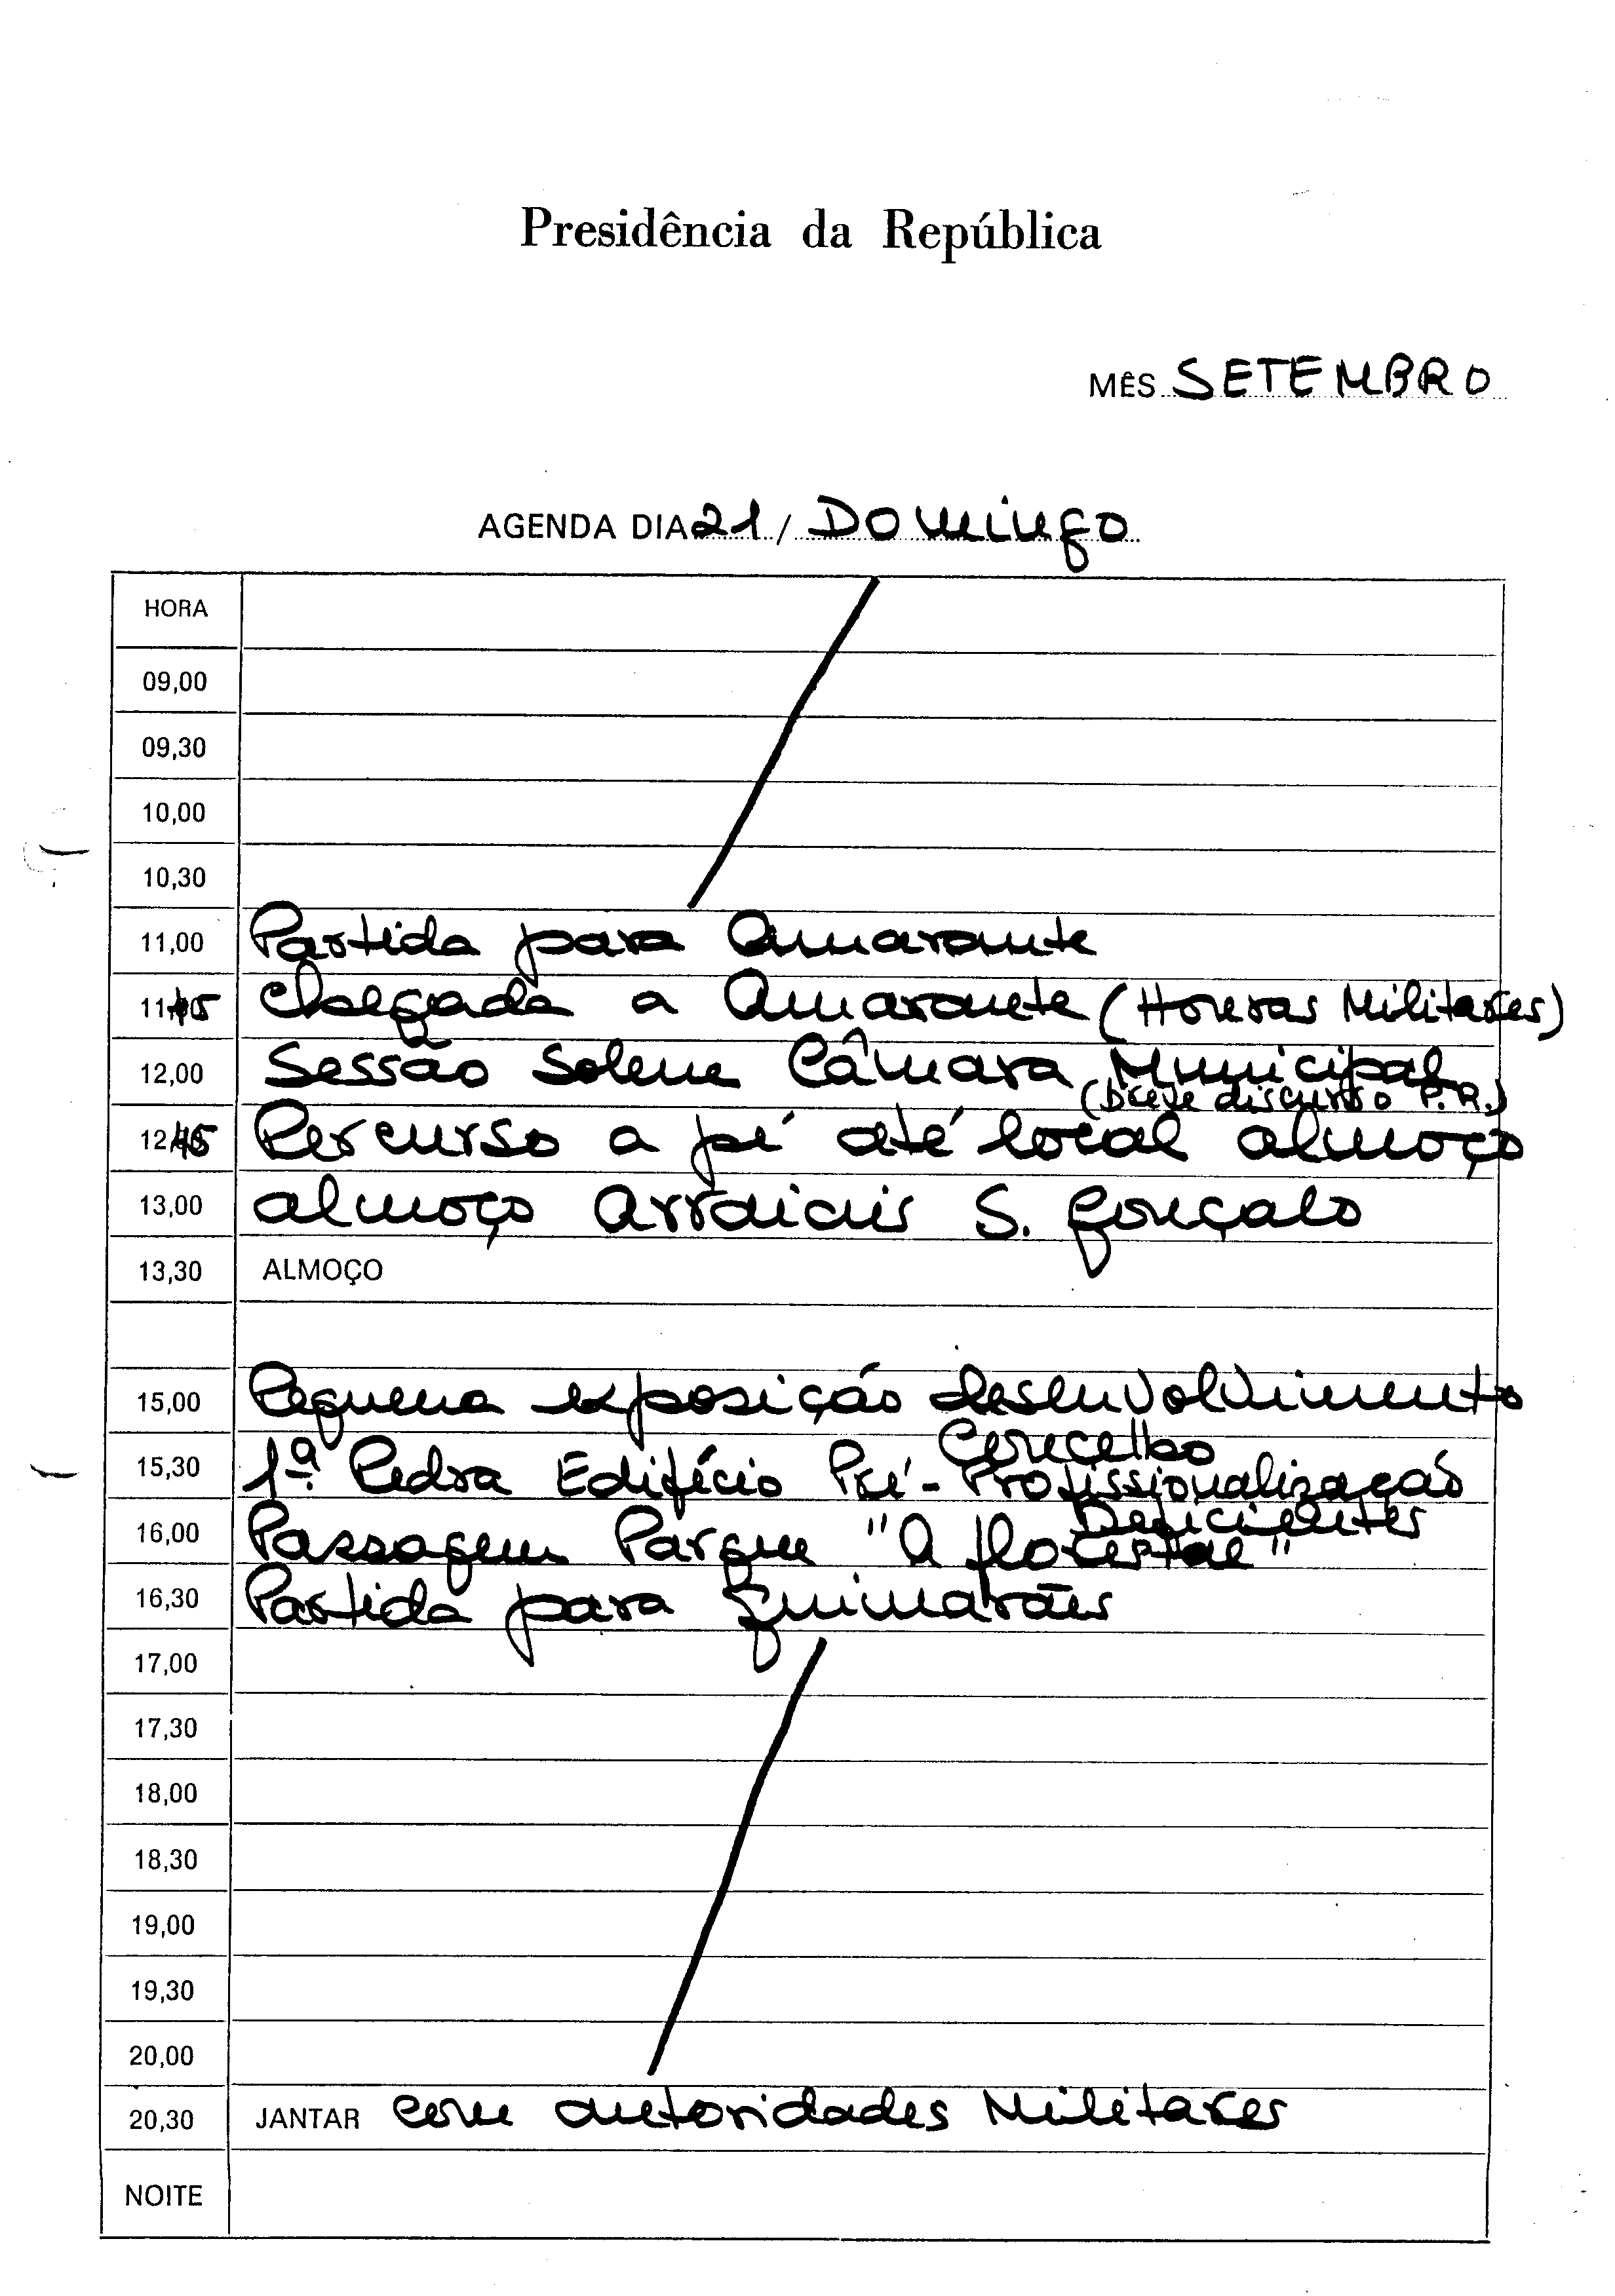 Presidência da República
MÊS SETEMBRO
AGENDA DIA 21 / Domingo
HORA
09,00
09,30
10,00
10,30
11,00 Partida para Amarante
11,45 Chegada a Amarante (Honras Militares)
12,00 Sessão Solene Câmara Municipal
(breve discurso P.R.)
12,45 Percurso a pé até local almoço
13,00 almoço Arraiais S. Gonçalo
13,30 ALMOÇO
15,00 Pequena exposição desenvolvimento
Concelho
15,30 1ª Pedra Edifício Pré-Profissionalização
Deficientes
16,00 Passagem Parque "A florestal"
16,30 Partida para Guimarães
17,00
17,30
18,00
18,30
19,00
19,30
20,00
20,30 JANTAR com autoridades Militares
NOITE